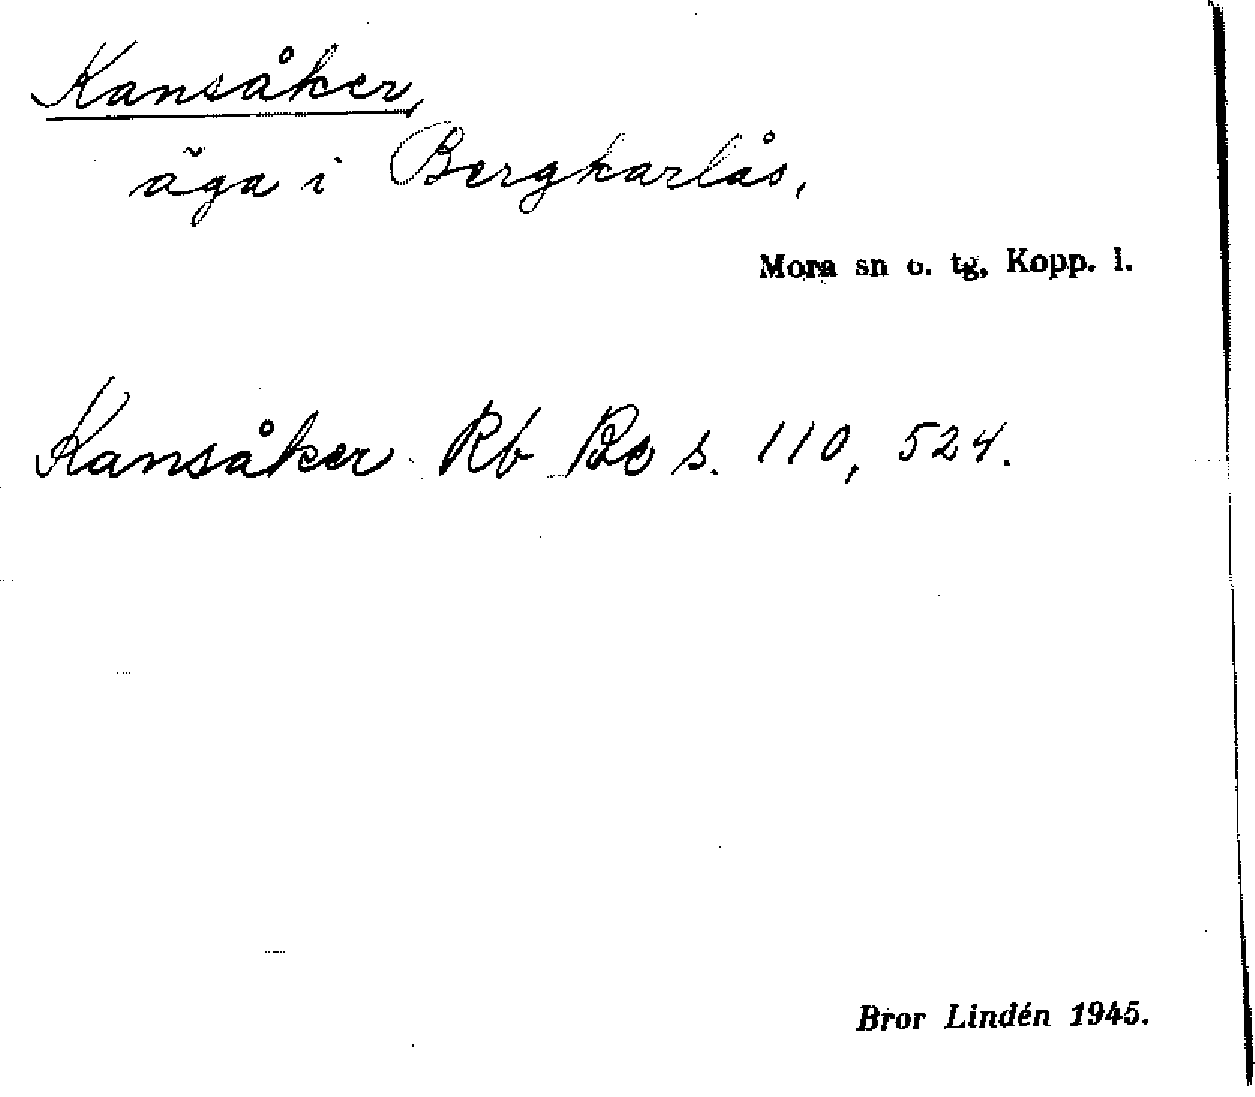 Kansåker,
äga i Bergkarlås,
Mora sn o. tg, Kopp. l.
Kansåker Rb Bc s. 110, 524.
Bror Lindén 1945.